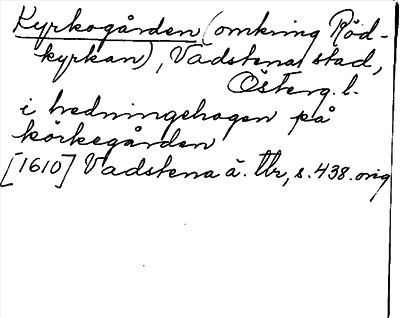 Kyrkogården (omkring Röd-
kyrkan), Vadstena stad,
Österg. l.
i hredningehagen på
körkegården
[1610] Vadstena ä. Tbr, s. 438. orig